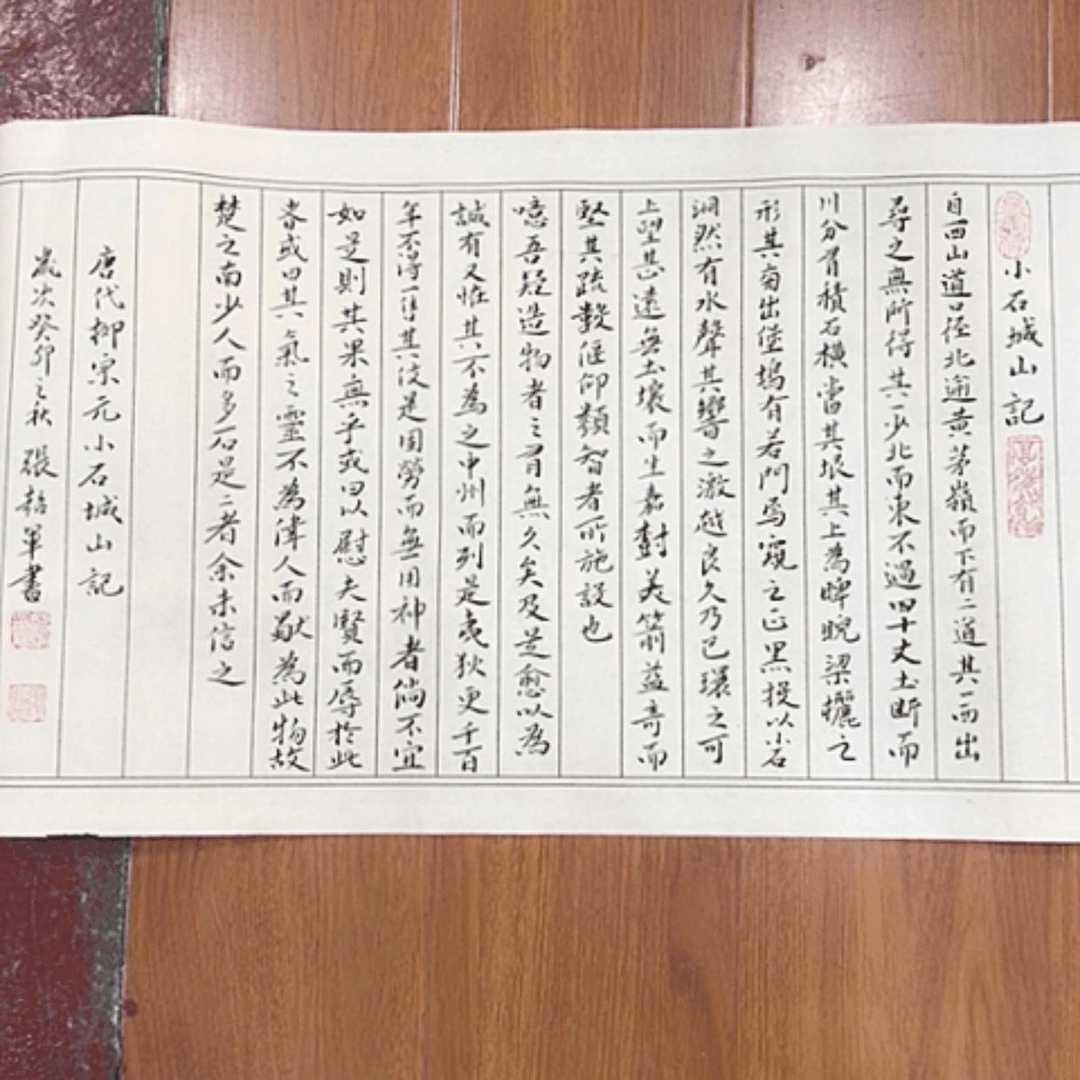 小石城山記
自西山道口徑北逾黄茅嶺而下有二道其一西出
尋之無所得其一少北而東不過四十丈土斷而
川分有積石橫當其垠其上為睥睨梁欐之
形其旁出堡塢有若門焉窺之正黑投以小石
洞然有水聲其響之激越良久乃已環之可
上望甚遠無土壤而生嘉樹美箭益奇而
堅其疏數偃仰類智者所施設也
噫吾疑造物者之有無久矣及是愈以為
誠有又怪其不為之中州而列是夷狄更千百
年不得一售其伎是固勞而無用神者倘不宜
如是則其果無乎或曰以慰夫賢而辱於此
者或曰其氣之靈不為偉人而獨為此物故
楚之南少人而多石是二者余未信之
唐代柳宗元小石城山記
歲次癸卯之秋 張軍書